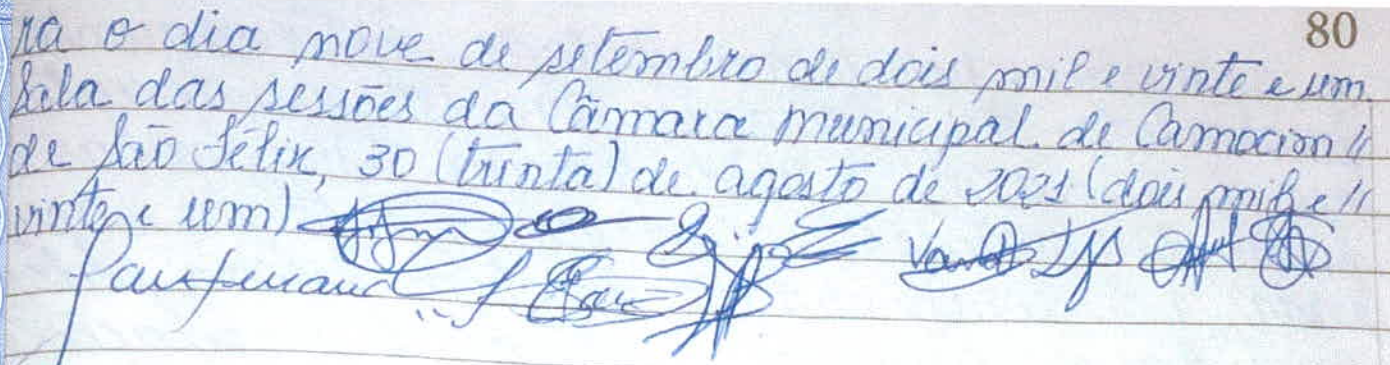 80
ra o dia nove de setembro de dois mil e vinte e um.
Sala das sessões da Câmara municipal de Camocim //
de São Félix, 30 (trinta) de agosto de 2021 (dois mil e //
vinte e um)